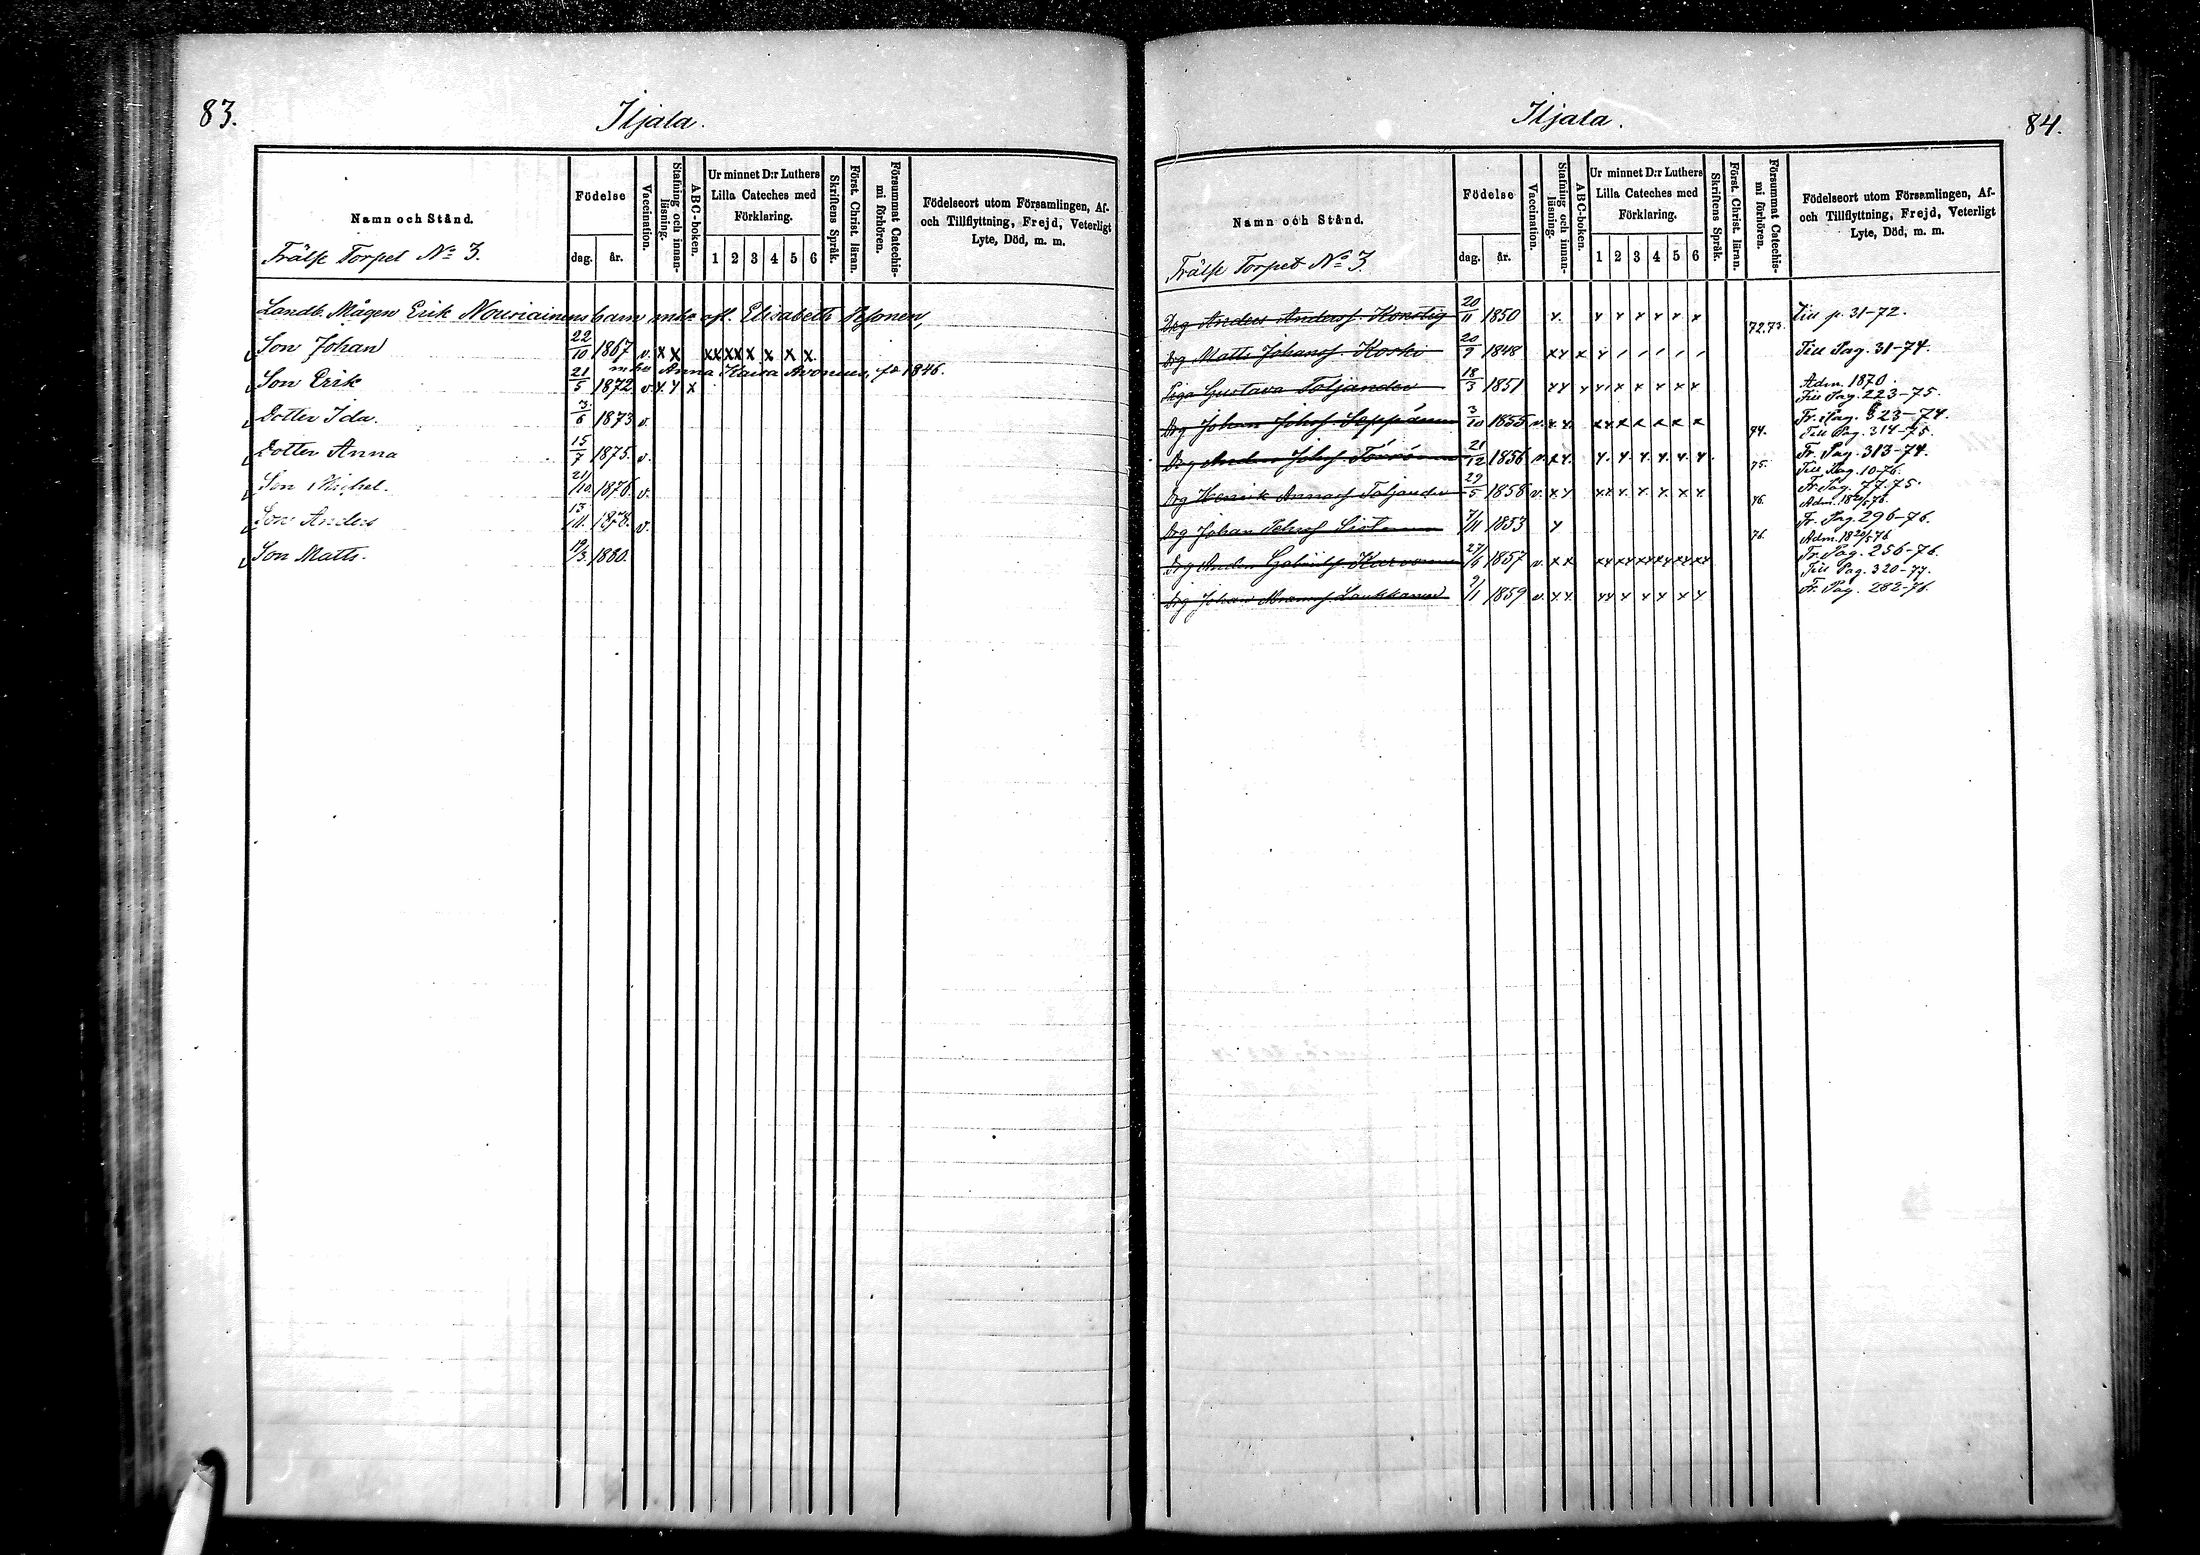 83.
Iljala.
Namn och Stånd.
Födelse
dag.
år.
Vaccination.
Stafning och innan-
läsning.
ABC-boken.
Ur minnet D:r Luthers
Lilla Cateches med
Förklaring.
1 2 3 4 5 6
Skriftens Språk.
Först. Christ. läran.
Försummat Catechis-
mi förhören.
Födelseort utom Församlingen, Af-
och Tillflyttning, Frejd, Veterligt
Lyte, Död, m. m.
Frälse Torpet No 3.
Landb. Mågen Erik barn mhu afl. Elisabeth
Son Johan 22/10 1867 v. x x xx xx x x x x
mhu Anna Kaisa f. 1846.
Son Erik 21/5 1872 v. x x x
Dotter Ida. 3/6 1873 v.
Dotter Anna 15/7 1875. v.
Son Michel. 21/10 1876. v.
Son Anders 13/11 1878. v.
Son Matts. 19/3 1880.
84.
Iljala.
Namn och Stånd.
Födelse
dag.
år.
Vaccination.
Stafning och innan-
läsning.
ABC-boken.
Ur minnet D:r Luthers
Lilla Cateches med
Förklaring.
1 2 3 4 5 6
Skriftens Språk.
Först. Christ. läran.
Försummat Catechis-
mi förhören.
Födelseort utom Församlingen, Af-
och Tillflyttning, Frejd, Veterligt
Lyte, Död, m. m.
Frälse Torpet No 3.
Drg Anders Andersf. 20/11 1850 x x x x x x x 72.73. Till p. 31-72.
Drg Matts Johansf. Koski 20/9 1848 xx x x / / / / / Till Pag. 31-74.
Piga Gustava Toljander 18/3 1851 xx x x x x x x x Adm. 1870.
Till Pag. 223-75.
Drg Johan Johsf Seppänen 3/10 1855 v. x x xx x x x x x 74. Fr. Pag. 323-74.
Till Pag. 314-75.
Drg Anders Johsf 21/12 1856 v. x x x x x x x x 75. Fr. Pag. 313-74.
Till Pag. 10-76.
Drg Henrik Toljander 29/5 1858 v. x x xx x x x x x 76. Fr. Pag. 77.75.
Drg Johan 7/11 1853 x 76. Fr. Pag. 296-76.
Drg Anders Gabrielsf 27/6 1857 v. x x xx xx xx xx xx xx Fr. Pag. 256-76.
Till Pag. 320-77.
Drg Johan Laukkanen 9/1 1859 v. x x xx x x x x x Fr. Pag. 282-76.